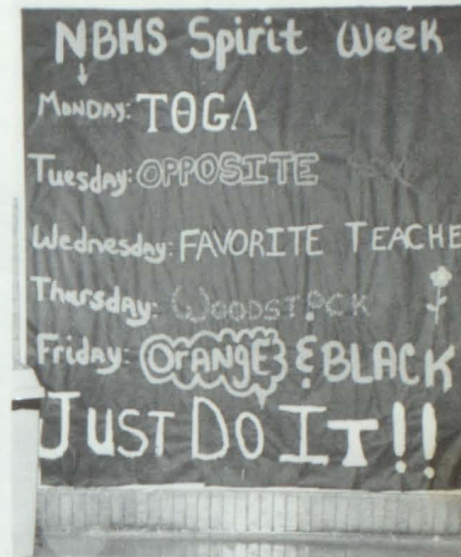 NBHS Spirit Week
MONDAY: TΘGΛ
Tuesday: OPPOSITE SEX
Wednesday: FAVORITE TEACHE
Thursday: WOODSTOCK
Friday: ORANGE & BLACK
JUST DO IT!!